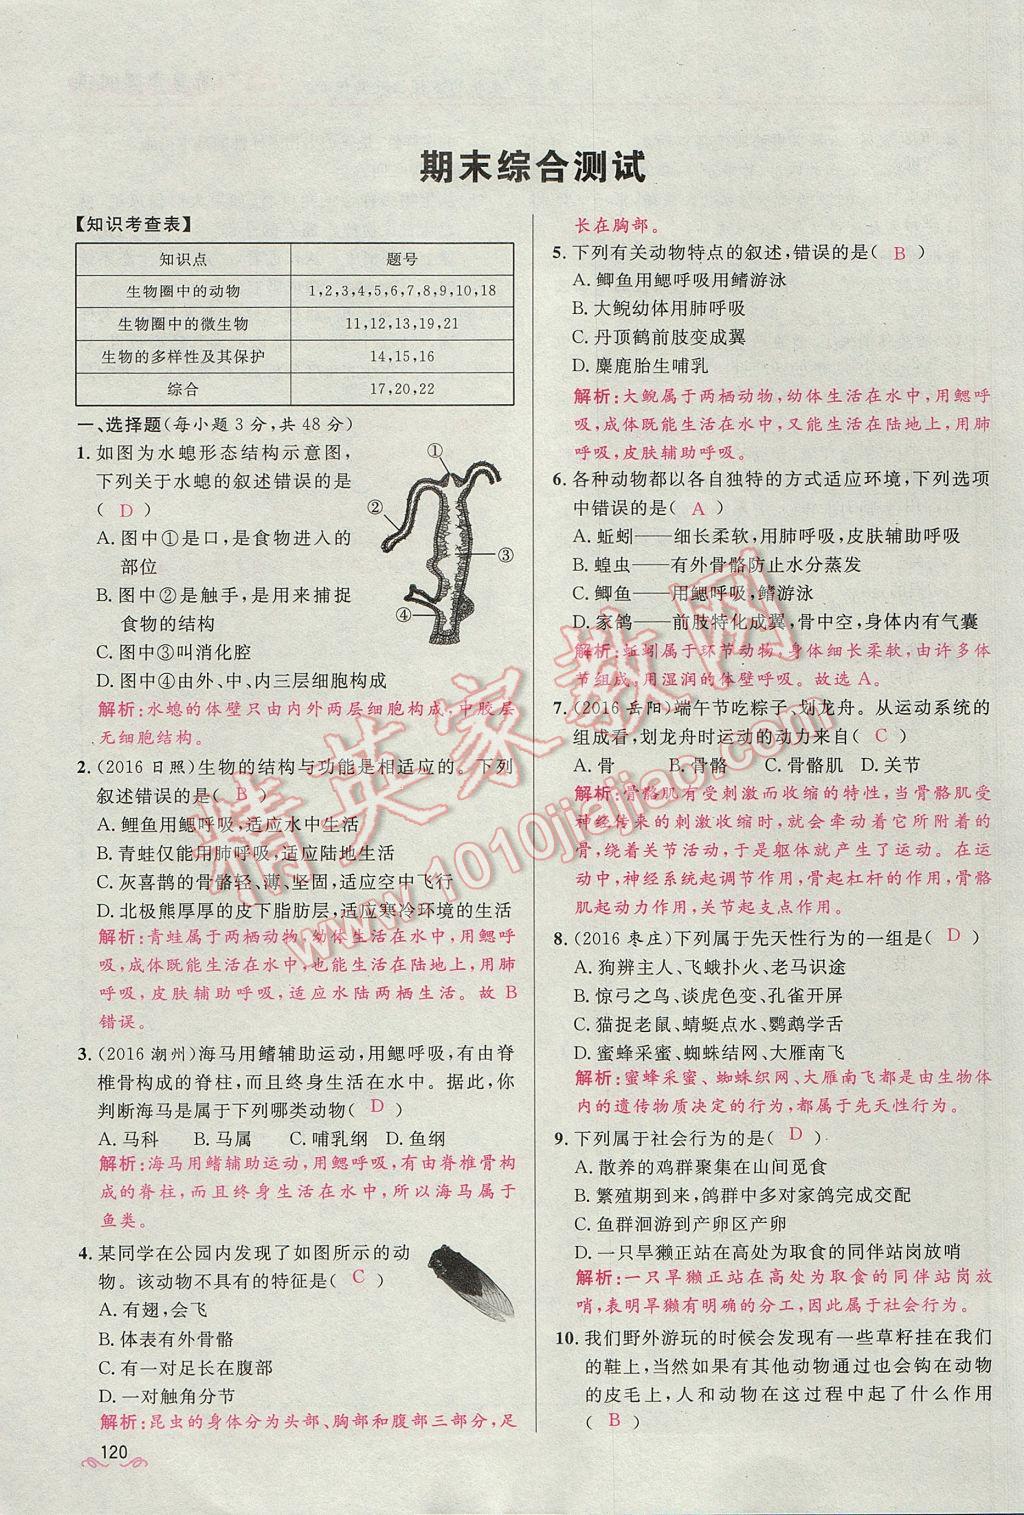 期末综合测试
【知识考查表】
知识点 题号
生物圈中的动物 1,2,3,4,5,6,7,8,9,10,18
生物圈中的微生物 11,12,13,19,21
生物的多样性及其保护 14,15,16
综合 17,20,22
一、选择题(每小题3分,共48分)
1. 如图为水螅形态结构示意图,
下列关于水螅的叙述错误的是
( D )
A. 图中①是口,是食物进入的
部位
B. 图中②是触手,是用来捕捉
食物的结构
C. 图中③叫消化腔
D. 图中④由外、中、内三层细胞构成
①
②
③
④
解析:水螅的体壁只由内外两层细胞构成,中胶层
无细胞结构。
2. (2016日照)生物的结构与功能是相适应的。下列
叙述错误的是( B )
A. 鲤鱼用鳃呼吸,适应水中生活
B. 青蛙仅能用肺呼吸,适应陆地生活
C. 灰喜鹊的骨骼轻、薄、坚固,适应空中飞行
D. 北极熊厚厚的皮下脂肪层,适应寒冷环境的生活
解析:青蛙属于两栖动物,幼体生活在水中,用鳃呼
吸,成体既能生活在水中,也能生活在陆地上,用肺
呼吸,皮肤辅助呼吸,适应水陆两栖生活。故B
错误。
3. (2016潮州)海马用鳍辅助运动,用鳃呼吸,有由脊
椎骨构成的脊柱,而且终身生活在水中。据此,你
判断海马是属于下列哪类动物( D )
A. 马科 B. 马属 C. 哺乳纲 D. 鱼纲
解析:海马用鳍辅助运动,用鳃呼吸,有由脊椎骨构
成的脊柱,而且终身生活在水中,所以海马属于
鱼类。
4. 某同学在公园内发现了如图所示的动
物。该动物不具有的特征是( C )
A. 有翅,会飞
B. 体表有外骨骼
C. 有一对足长在腹部
D. 一对触角分节
解析:昆虫的身体分为头部、胸部和腹部三部分,足
120
长在胸部。
5. 下列有关动物特点的叙述,错误的是( B )
A. 鲫鱼用鳃呼吸用鳍游泳
B. 大鲵幼体用肺呼吸
C. 丹顶鹤前肢变成翼
D. 麋鹿胎生哺乳
解析:大鲵属于两栖动物,幼体生活在水中,用鳃呼
吸,成体既能生活在水中,又能生活在陆地上,用肺
呼吸,皮肤辅助呼吸。
6. 各种动物都以各自独特的方式适应环境,下列选项
中错误的是( A )
A. 蚯蚓——细长柔软,用肺呼吸,皮肤辅助呼吸
B. 蝗虫——有外骨骼防止水分蒸发
C. 鲫鱼——用鳃呼吸,鳍游泳
D. 家鸽——前肢特化成翼,骨中空,身体内有气囊
解析:蚯蚓属于环节动物,身体细长柔软,由许多体
节组成,用湿润的体壁呼吸。故选A。
7. (2016岳阳)端午节吃粽子、划龙舟。从运动系统的
组成看,划龙舟时运动的动力来自( C )
A. 骨 B. 骨骼 C. 骨骼肌 D. 关节
解析:骨骼肌有受刺激而收缩的特性,当骨骼肌受
神经传来的刺激收缩时,就会牵动着它所附着的
骨,绕着关节活动,于是躯体就产生了运动。在运
动中,神经系统起调节作用,骨起杠杆的作用,骨骼
肌起动力作用,关节起支点作用。
8. (2016枣庄)下列属于先天性行为的一组是( D )
A. 狗辨主人、飞蛾扑火、老马识途
B. 惊弓之鸟、谈虎色变、孔雀开屏
C. 猫捉老鼠、蜻蜓点水、鹦鹉学舌
D. 蜜蜂采蜜、蜘蛛结网、大雁南飞
解析:蜜蜂采蜜、蜘蛛织网、大雁南飞都是由生物体
内的遗传物质决定的行为,都属于先天性行为。
9. 下列属于社会行为的是( D )
A. 散养的鸡群聚集在山间觅食
B. 繁殖期到来,鸽群中多对家鸽完成交配
C. 鱼群洄游到产卵区产卵
D. 一只旱獭正站在高处为取食的同伴站岗放哨
解析:一只旱獭正站在高处为取食的同伴站岗放
哨,表明旱獭有明确的分工,因此属于社会行为。
10. 我们野外游玩的时候会发现有一些草籽挂在我们
的鞋上,当然如果有其他动物通过也会钩在动物
的皮毛上,人和动物在这过程中起了什么作用
( B )
精英家教网
www.1010jiajiao.com